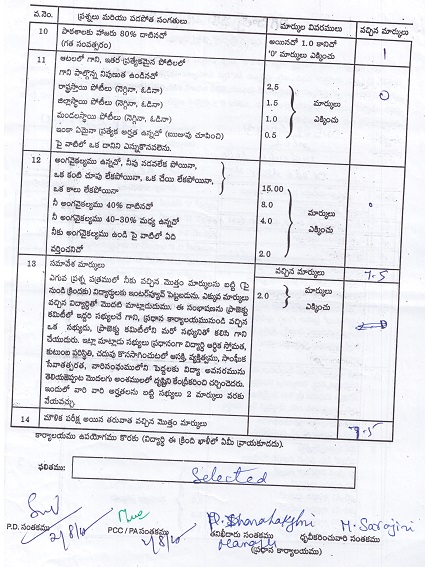 వ.నెం. ప్రశ్నలు మరియు వడపోత సంగతులు మార్కుల వివరములు వచ్చిన మార్కులు
10 పాఠశాలకు హాజరు 80% దాటినదో అయినచో 1.0 కానిచో 1
(గత సంవత్సరం) '0' మార్కులు ఎక్కించు
11 ఆటలలో గాని, ఇతర ప్రత్యేకమైన పోటీలలో 0
గాని పాల్గొన్న నిపుణత ఉండినచో
రాష్ట్రస్థాయి పోటీలు (నెగ్గినా, ఓడినా) 2.5
జిల్లాస్థాయి పోటీలు (నెగ్గినా, ఓడినా) 1.5 మార్కులు
మండలస్థాయి పోటీలు (నెగ్గినా, ఓడినా) 1.0 ఎక్కించు
ఇంకా ఏమైనా ప్రత్యేక అర్హత ఉన్నచో (ఋజువు చూపించి) 0.5
పై వాటిలో ఒక దానిని ఎన్నుకొనవలెను.
12 అంగవైకల్యము ఉన్నచో, నీవు నడవలేక పోయినా,
ఒక కంటి చూపు లేకపోయినా, ఒక చేయి లేకపోయినా,
ఒక కాలు లేకపోయినా 15.00
నీ అంగవైకల్యము 40% దాటినచో 8.0 మార్కులు 0
నీ అంగవైకల్యము 40-30% మధ్య ఉన్నచో 4.0 ఎక్కించు
నీకు అంగవైకల్యము ఉండి పై వాటిలో ఏది
వర్తించనిచో 2.0
13 సమావేశ మార్కులు వచ్చిన మార్కులు 7.5
ఎగువ ప్రశ్న పత్రములో నీకు వచ్చిన మొత్తం మార్కులను బట్టి (పై
నుండి క్రిందకు) విద్యార్థులకు ఇంటర్వ్యూవ్ పెట్టబడును. ఎక్కువ మార్కులు 2.0 మార్కులు
వచ్చిన విద్యార్థితో మొదట మాట్లాడుదుము. ఈ సంభాషణను ప్రాజెక్టు ఎక్కించు
కమిటీలో ఇద్దరి సభ్యులచే గాని, ప్రధాన కార్యాలయమునుండి వచ్చిన
ఒక సభ్యుడు, ప్రాజెక్టు కమిటీలోని మరో సభ్యునితో కలిసి గాని
చేయుదురు. ఇట్లా మాట్లాడు సభ్యులు ప్రధానంగా విద్యార్థి ఆర్థిక స్తోమత,
కుటుంబ పరిస్థితి, చదువు కొనసాగించుటలో ఆసక్తి, వ్యక్తిత్వము, సాంఘిక
సేవాతత్పరత, వారినసంఘములోని పెద్దలకు విద్యా అవసరమును
తెలియజెప్పుట మొదలగు అంశములలో దృష్టిని కేంద్రీకరించి చర్చించెదరు.
ఇందులో వారి వారి అర్హతలను బట్టి సభ్యులు 2 మార్కులు వరకు
వేయవచ్చు.
14 మౌఖిక పరీక్ష అయిన తరువాత వచ్చిన మొత్తం మార్కులు 9.5
కార్యాలయము ఉపయోగము కొరకు (విద్యార్థి ఈ క్రింది ఖాళీలో ఏమీ వ్రాయకూడదు).
ఫలితము: Selected
M. Sarojini
P.D. సంతకము PCC / PA సంతకము తనిఖీదారు సంతకము ధృవీకరించువారి సంతకము
2/8/10 2/8/10 (ప్రధాన కార్యాలయము)